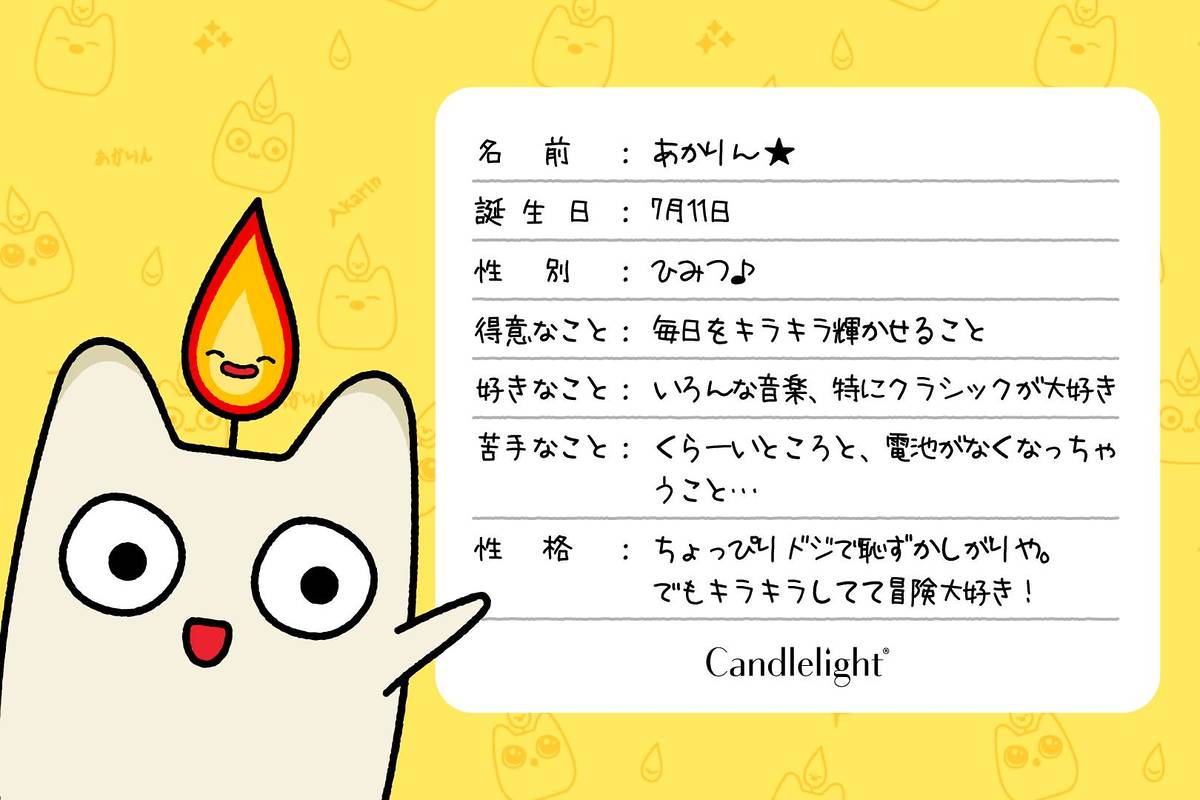 名前：あかりん★
誕生日：7月11日
性別：ひみつ♪
得意なこと：毎日をキラキラ輝かせること
好きなこと：いろんな音楽、特にクラシックが大好き
苦手なこと：くらーいところと、電池がなくなっちゃ
うこと…
性格：ちょっぴりドジで恥ずかしがりや。
でもキラキラしてて冒険大好き！
Candlelight®
あかりん
Akarin
あかりん